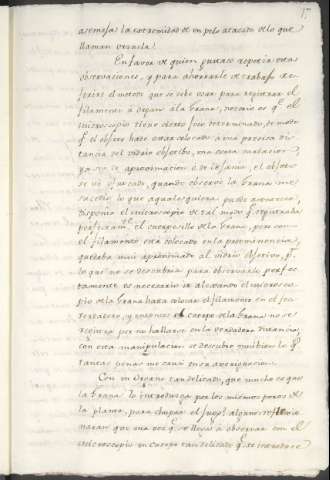 17
asemeja la extremidad de un pelo atacado de lo que
llaman orzuela.
En favor de quien quisiere repetir estas
observaciones, y para ahorrarle de trabajo re-
feriré el metodo que se debe usar para registrar el
filamento ó organ à la Grana, notorio es q.e el
microscopio tiene cierto foco determinado, de modo
q.e el objeto debe estar colocado à una precisa dis-
tancia del vidrio objetivo, una corta variacion
ya sea de aproximacion ó de lejania, el objeto
se vé ofuscado, quando observé la Grana me
sucedio lo que à qualesquiera puede acaecer,
disponia el microscopio de tal modo q.e registraba
perfectam.te el cuerpesillo de la Grana, pero como
el filamento está colocado en la prominencia,
quedaba mas aproximado al vidrio objetivo, p.r
lo que no se descubria para observarle perfec-
tamente es necesario ir alexando el microsco-
pio de la Grana hasta colocar el filamento en el foco
verdadero, y entonces el cuerpo de la Grana no se
registra por no hallarse en la verdadera distancia,
con esta manipulacion se descubre mui bien lo q.e
tantas penas me causó en su averiguacion.
Con un organo tan delicado, que mucho es que
la Grana lo introdusca por los mismos poros de
la planta, para chupar el jugo? algunos se
naran que una vez q.e se llega à observar con el
microscopio un cuerpo tan delicado q.e se introduce